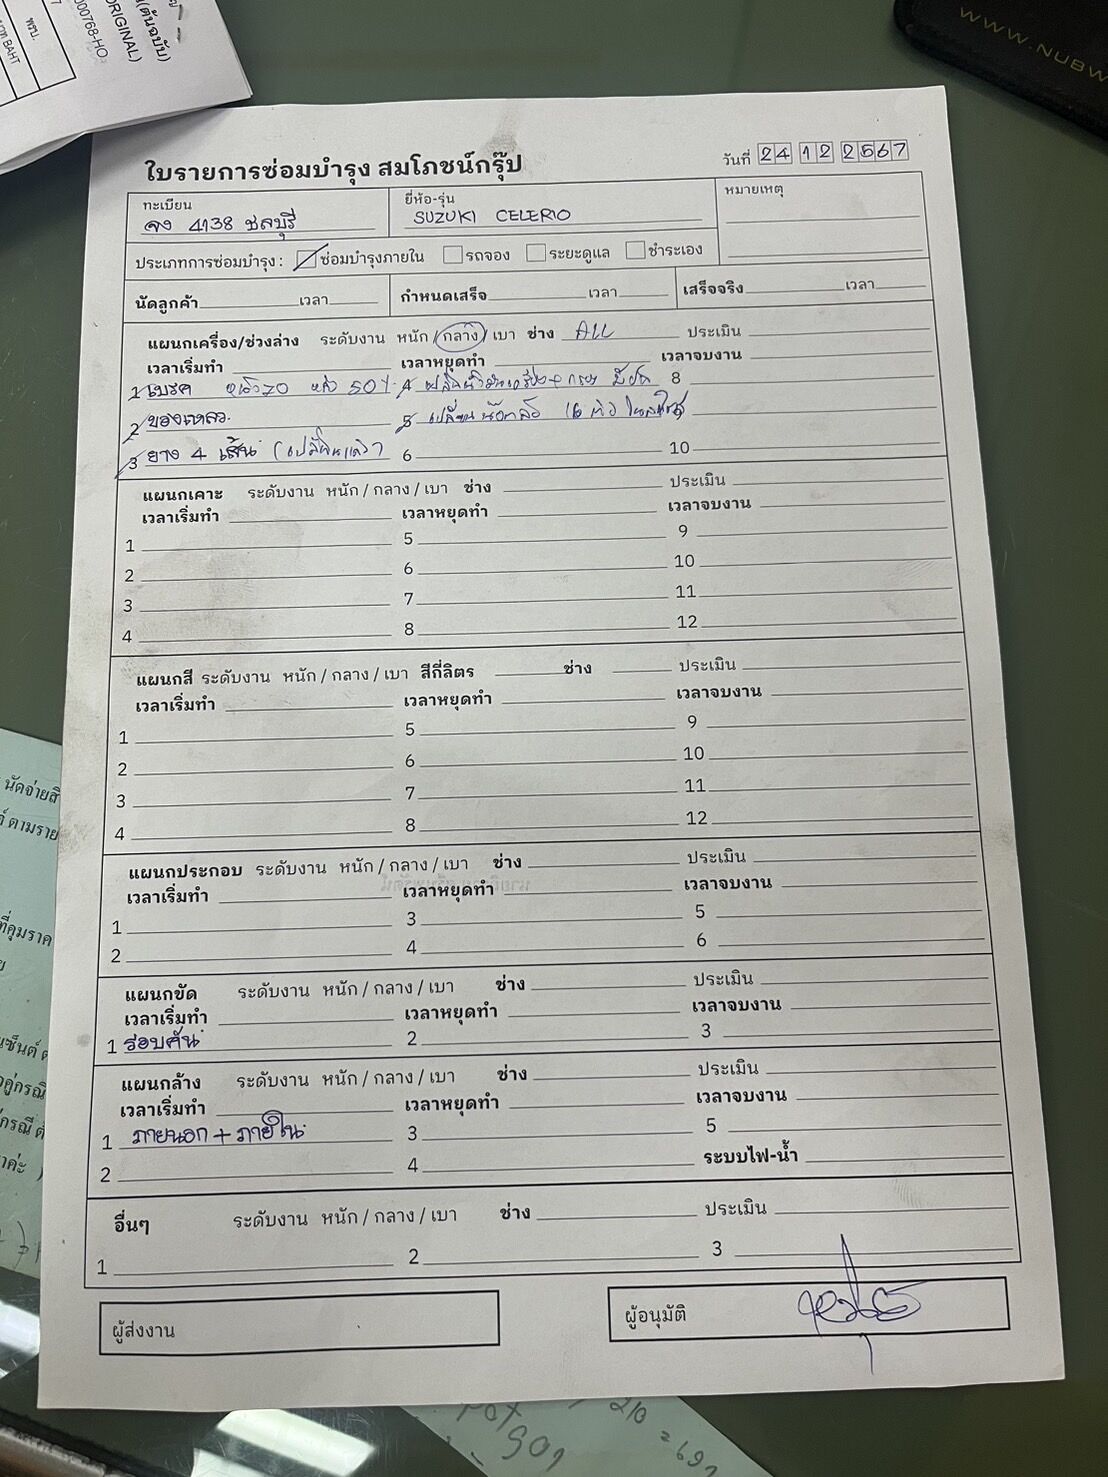 (ต้นฉบับ)
ORIGINAL)
000768-HO
พรบ.
BAHT
WWW.NUBW
ใบรายการซ่อมบำรุง สมโภชน์กรุ๊ป
วันที่ 24 12 2567
ทะเบียน ยี่ห้อ-รุ่น หมายเหตุ
จง 4138 ชลบุรี SUZUKI CELERIO
ประเภทการซ่อมบำรุง : ซ่อมบำรุงภายใน รถจอง ระยะดูแล ชำระเอง
นัดลูกค้า เวลา กำหนดเสร็จ เวลา เสร็จจริง เวลา
แผนกเครื่อง/ช่วงล่าง ระดับงาน หนัก / กลาง / เบา ช่าง ALL ประเมิน
เวลาเริ่มทำ เวลาหยุดทำ เวลาจบงาน
1 เบรค หน้า 70 หลัง 50% 4 เปลี่ยนน้ำมันเครื่อง + กรอง 8
2 ของเหลว 5 เปลี่ยน
3 ยาง 4 เส้น (เปลี่ยนแล้ว) 6 10
แผนกเคาะ ระดับงาน หนัก / กลาง / เบา ช่าง ประเมิน
เวลาเริ่มทำ เวลาหยุดทำ เวลาจบงาน
1 5 9
2 6 10
3 7 11
4 8 12
แผนกสี ระดับงาน หนัก / กลาง / เบา สีกี่ลิตร ช่าง ประเมิน
เวลาเริ่มทำ เวลาหยุดทำ เวลาจบงาน
1 5 9
2 6 10
3 7 11
4 8 12
แผนกประกอบ ระดับงาน หนัก / กลาง / เบา ช่าง ประเมิน
เวลาเริ่มทำ เวลาหยุดทำ เวลาจบงาน
1 3 5
2 4 6
แผนกขัด ระดับงาน หนัก / กลาง / เบา ช่าง ประเมิน
เวลาเริ่มทำ เวลาหยุดทำ เวลาจบงาน
1 รอบคัน 2 3
แผนกล้าง ระดับงาน หนัก / กลาง / เบา ช่าง ประเมิน
เวลาเริ่มทำ เวลาหยุดทำ เวลาจบงาน
1 ภายนอก + ภายใน 3 5
2 4 ระบบไฟ-น้ำ
อื่นๆ ระดับงาน หนัก / กลาง / เบา ช่าง ประเมิน
1 2 3
ผู้ส่งงาน ผู้อนุมัติ
นัดจ่ายสิ
ตามราย
ที่คุมราค